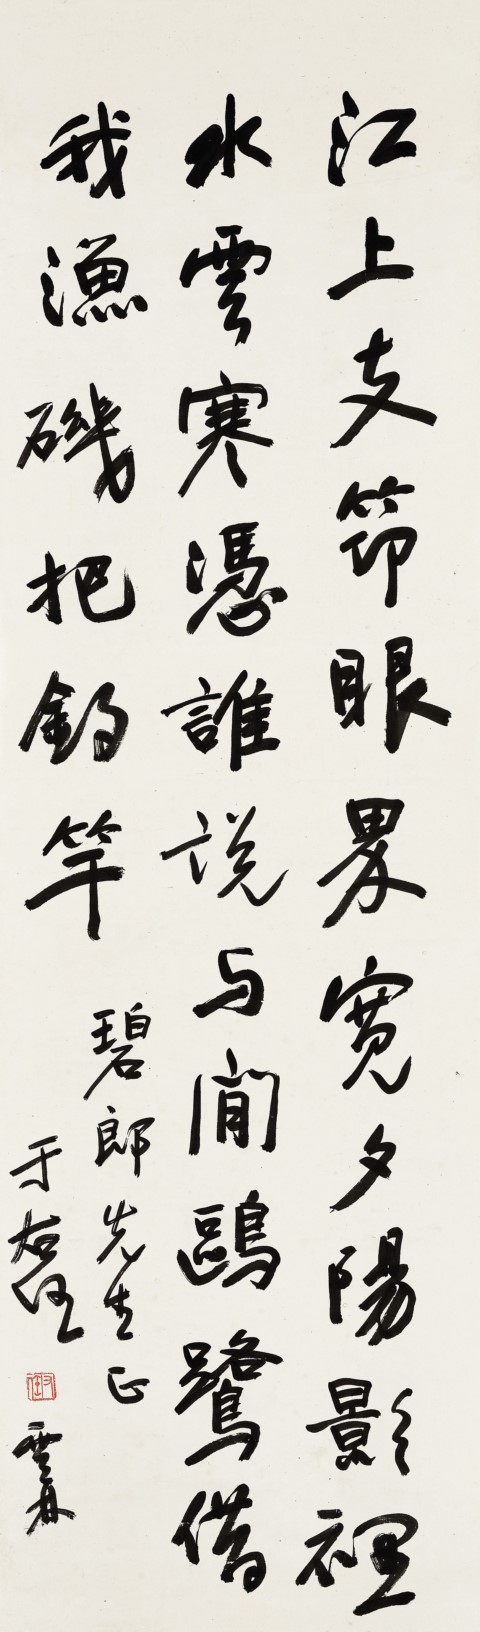 江上支筇眼界寬夕陽影裡
水雲寒憑誰說与閒鷗鷺借
我漁磯把釣竿
碧郎先生正
于右任
右任